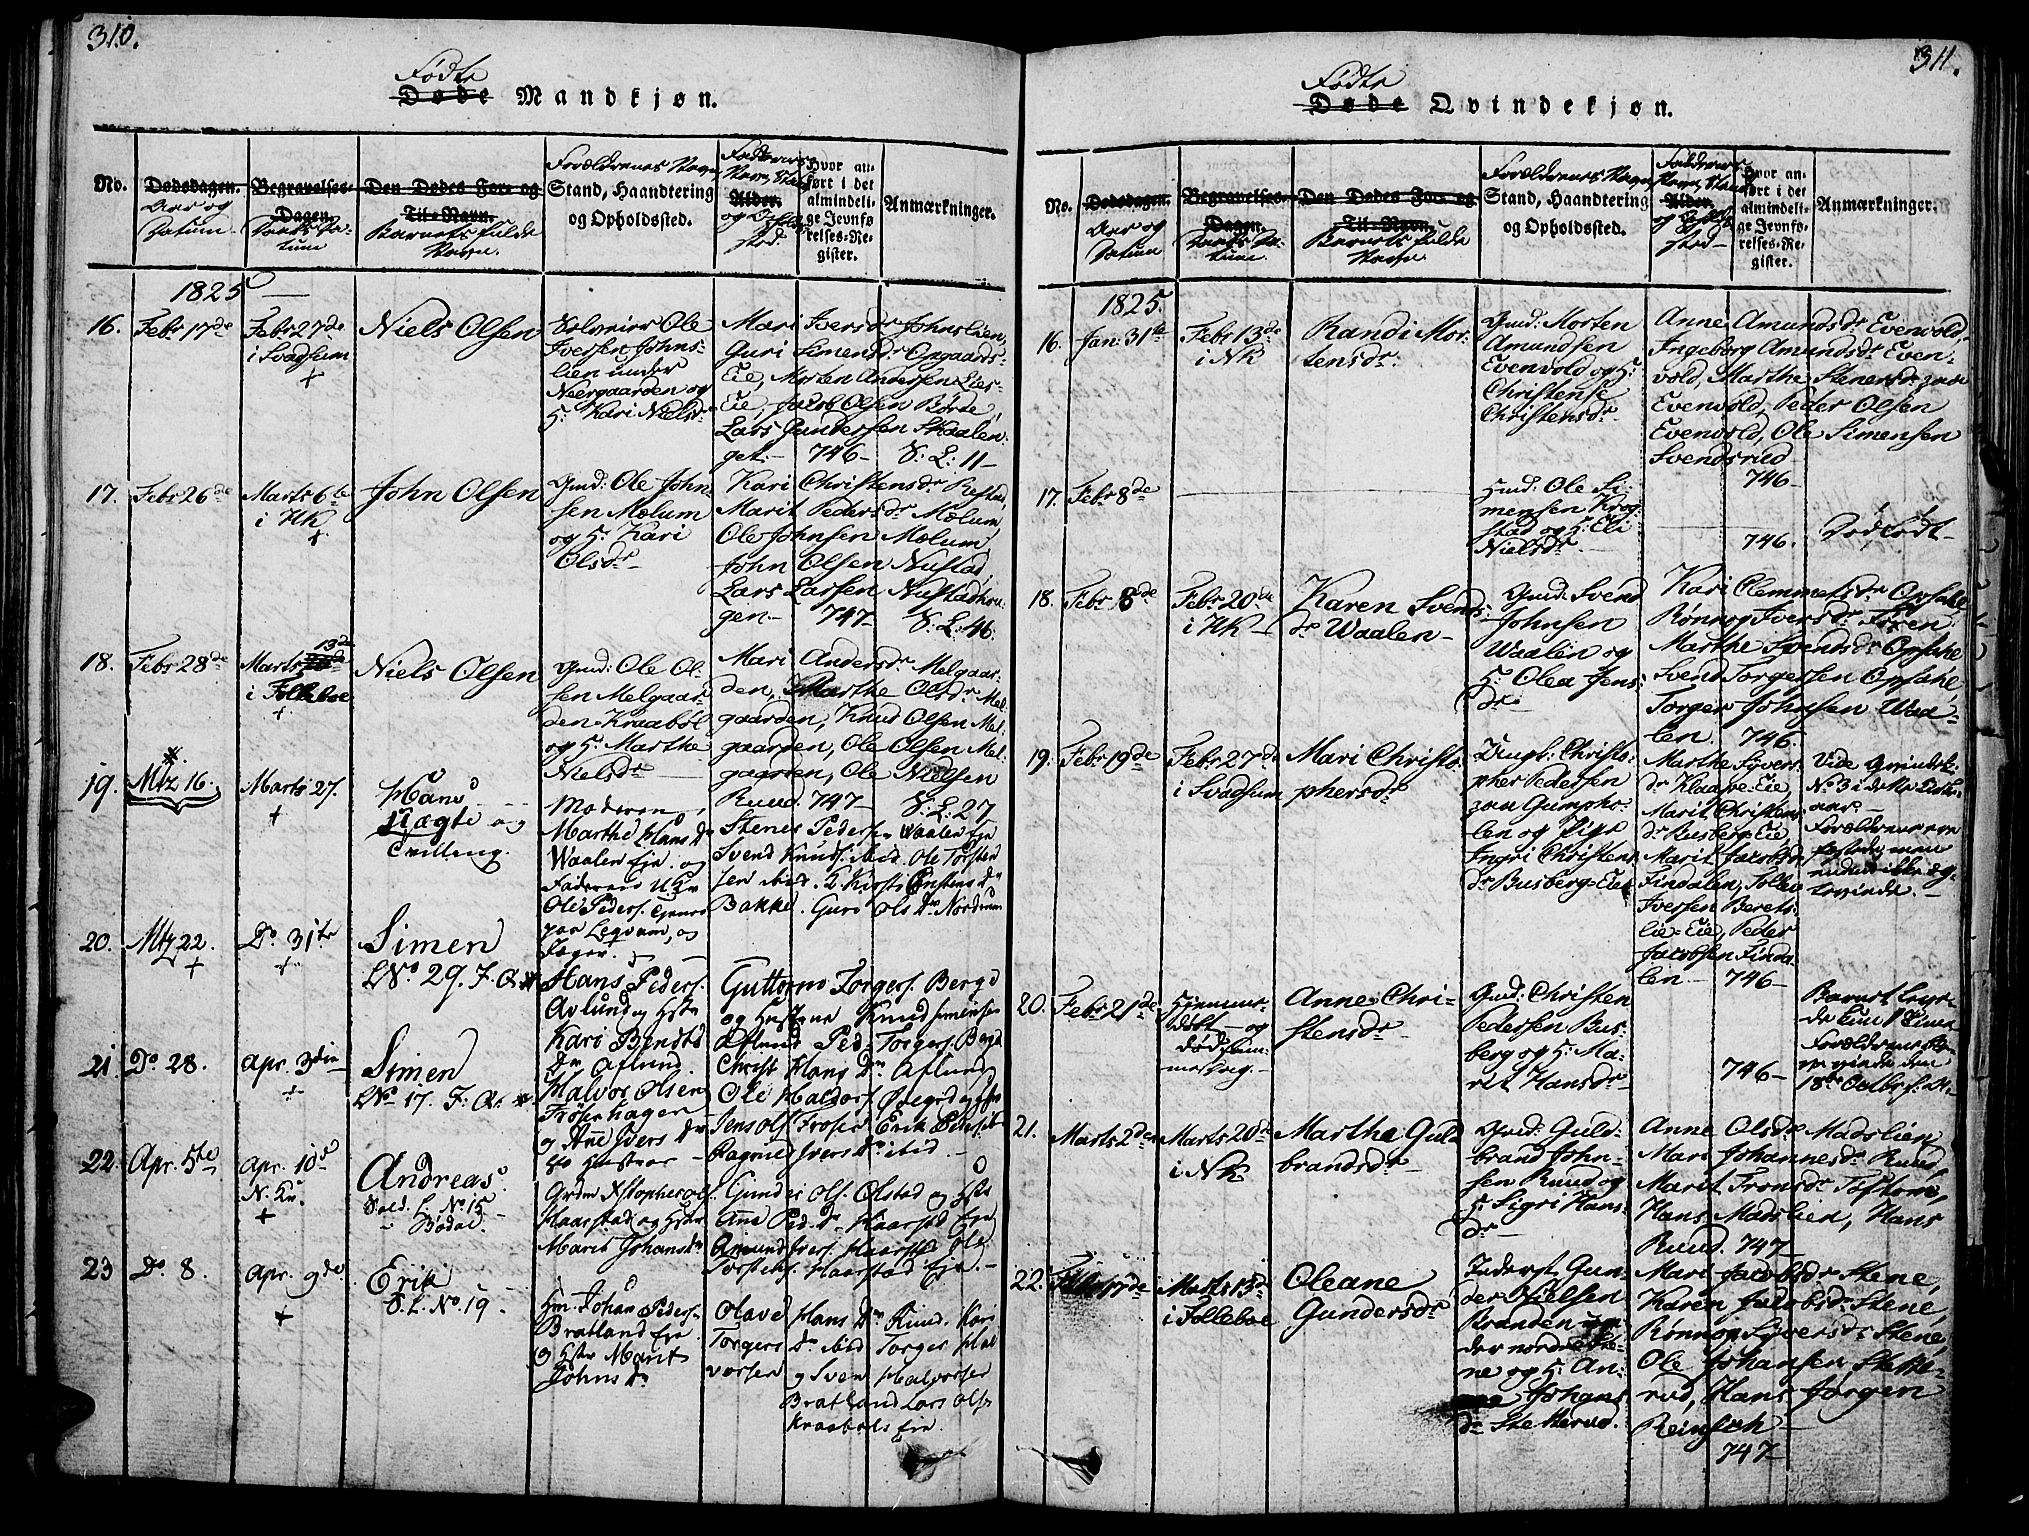 310.
Fødte
Døde Mandkjøn.
No.
Dødsdagen.
Aar og
Datum.
Begravelses-
Dagen.
Daabs Da-
tum
Den Dødes For- og
Til-Navn.
Barnets fulde
Navn.
Forældrenes Navn
Stand, Haandtering
og Opholdssted.
Faddernes
Navn, Stand
Alder.
og Opholds
sted.
Hvor an-
ført i det
almindeli-
ge Jevnfø-
relses-Re-
gister.
Anmærkninger.
1825
16. Febr 17de
Febr 27de
i Svadsum
+
Niels Olsen
Ole
Iversen Johns-
lien under
Neergaarden og
H: Kari Nielsdr
Mari Iversdr Johnslien,
Guri Simensdr Opgaards-
Eie, Morten Andersen Lies-
Eie, Jacob Olsen Børde,
Lars Gundersen Skaalen-
get. 746- S: L: 11-
17. Febr 26de
Marts 6te
i HK
+
John Olsen
Gmd: Ole John-
sen Mælum
og H: Kari
Olsdr
Kari Christensdr Restad,
Marit Pedersdr Mælum,
Ole Johnsen Mælum,
John Olsen Nustad,
Lars Larsen Nustadhou-
gen- 747- S: L: 46.
18. Febr 28de
Marts 13de
i Folleboe
+
Niels Olsen
Gmd: Ole Ol-
sen Melgaar-
den Kraabøl
og H: Marthe
Nielsdr
Mari Andersdr Melgaar-
den, Marthe Olsdr Mel-
gaarden, Knud Olsen Mel-
gaarden, Ole Olsen Mel-
gaarden, Ole Nielsen
Ruud. 747- S: L: 27
19. Mtz 16.
Marts 27.
+
Hans
Uægte og
Tvilling.
Moderen
Marthe Hans Dr
Waalen Eje. og
Faderen
Ole Peders.
paa Leqvam, og
Stener Peders Waalen Eje
Svend Knuds. ibid. Ole Torsten
sen ibid.
Bakke. Guri Ols Dr Nordrum
20. Mtz 22.
+
Do 31te
+
Simen
LNo 29. F. A.
Hans Peders.
Avlund og Hstr
Kari Bendts
Dr Aflund.
Guttorm Torgers. Berge
og Hustrue Knud Simensen
Aflund Ped. Torgers. Berge
Christ Hans Dr Aflund
21. Do 28.
Apr. 3die
+
Simen
LNo 17. F. A.
Halvor Olsen
Frøysehagen
og Anne Ivers Dr
Ole Haldors. Øvegrd og Hstr
Jens Ols. Frøyse Erik Peders. ibd
Ragnild Ivers Dr ibid.
22. Apr. 5te
Apr. 10de
N. K.
+
Andreas
L No 15
Bødal.
Grdm Xstopher Ols.
Haarstad og Hstr
Marit Johans Dr
Gunder Ols. Olstad og Hstr
Ane Ped. Dr Haarstd Eje
Amund Ivers. Haarst. Ole
Torstens. Haarstad Eje.
23 Do 8.
Apr. 9de
+
Erik
S. L. No. 19.
Hm Johan Peders.
Bratland Eje
og Hstr Marit
Johns Dr
Olave Hans Dr Ruud. Kari
Torgers Dr ibid Torger Hal
vorsen og Sven Halvorsen
Bratland Lars Ols.
Kraabøls Eje.
311.
Fødte
Døde Qvindekjøn.
No.
Dødsdagen.
Aar og
Datum
Begravelses-
Dagen.
Daabs Da-
tum.
Den Dødes For- og
Til-Navn.
Barnets fulde
Navn.
Forældrenes Navn,
Stand, Haandtering
og Opholdssted.
Faddernes
Navn, Stand
Alder.
og Opholds
sted
Hvor an-
ført i det
almindeli-
ge Jevnfø-
relses-Re-
gister.
Anmærkninger.
1825.
16. Jan. 31te
Febr 13de
i NK
Randi Mor-
tensdr.
Gmd: Morten
Amundsen
Evenvold og H:
Christense
Christensdr
Anne Amundsdr Evenvold,
Ingeborg Amundsdr Even-
vold, Marthe Stenersdr paa
Evenvold, Peder Olsen
Evenvold, Ole Simensen
Svendsrud
746-
17. Febr 8de
Hmd: Ole Si-
mensen Krog-
stad og H: Eli
Nielsdr
746.
Dødfødt-
18. Febr 8de
Febr 20de
i HK
Karen Svends-
dr Waalen
Gmd: Svend
Johnsen
Waalen og
H: Olea Jens-
dr
Kari Clemmetsdr Opsahl
Rønnog Iversdr Foren
Marthe Svendsdr Opsahl
Svend Torgersen Opsahl,
Torger Johnsen Waa-
len. 746.
19. Febr 19de
Febr 27de
i Svadsum
Mari Christo-
phersdr
Ungk: Christo-
pher Pedersen
paa Gumpho-
len og Pige
Ingri Christens-
dr Busberg-Eie
Marthe Syvers-
dr Klaave-Eie,
Marit Christens-
dr Busberg-Eie
Marit Jacobsdr
Findalen, Tollev
Iversen Berets-
lie-Eie, Peder
Jacobsen Finda-
len 746-
Vide Qvindek:
No 3 i dette Kirke-
aar.
Forældrene ere
fæstede, men
endnu ikke eg-
teviede.
20. Febr 21de
Hjemme-
døbt og
død sam-
me Dag.
Anne Chri-
stensdr
Gmd: Christen
Pedersen Bus-
berg og H: Ma-
rit Hansdr
746-
Barnet leve-
de kun 1 Time
Forældrene ble-
ve viede den
18de Octbr f. A.
21. Marts 2den
Marts 20de
i NK
Marthe Guld
brandsdr
Gmd: Guld-
brand John-
sen Ruud og
H: Sigri Hans-
dr
Anne Olsdr Madslien
Mari Johannesdr Ruud,
Marit Tronsdr Toftene,
Hans Madslien, Hans
Ruud. 747-
22. 17de
Marts 13de
i Folleboe
Oleane
Gundersdr
Inderst Gun-
der Nielsen
Branden un-
der nordre Ste-
ne og H: An-
ne Johans
dr Stallerud.
Mari Jacobsdr Stene,
Karen Jacobsdr Stene,
Rønnog Syversdr Stene,
Ole Johansen Stalle-
rud, Hans Jørgen
Reinsch
747-